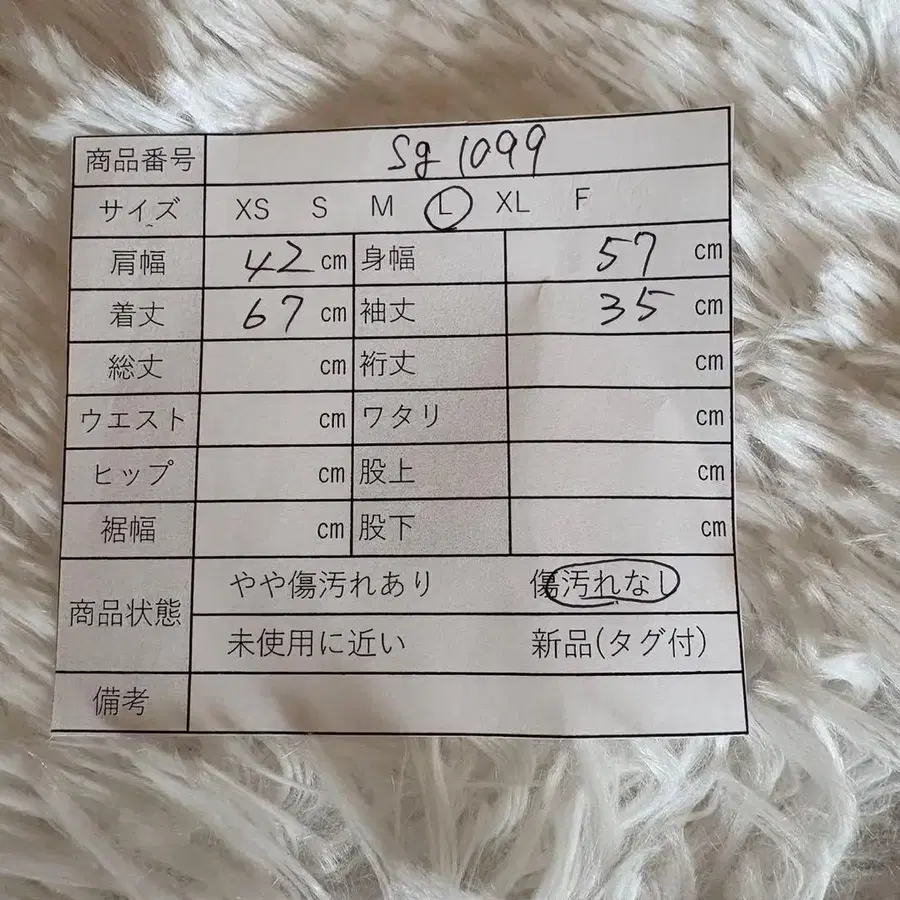 商品番号 Sg 1099
サイズ XS S M L XL F
肩幅 42 cm 身幅 57 cm
着丈 67 cm 袖丈 35 cm
総丈 cm 裄丈 cm
ウエスト cm ワタリ cm
ヒップ cm 股上 cm
裾幅 cm 股下 cm
商品状態 やや傷汚れあり 傷汚れなし
未使用に近い 新品(タグ付)
備考